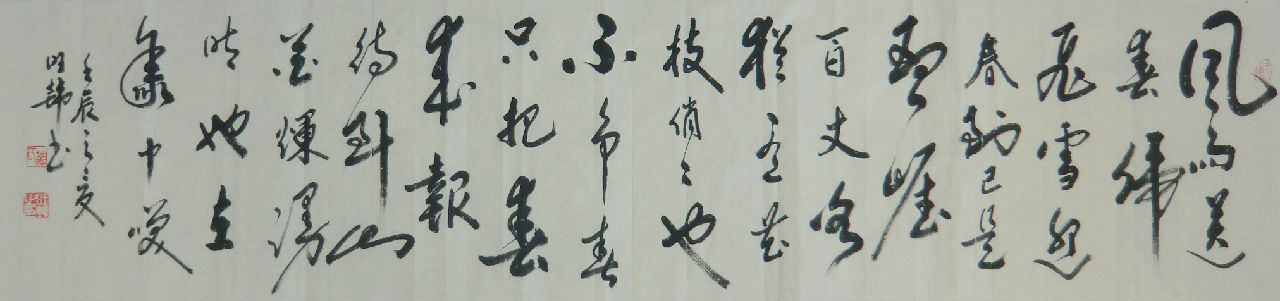 風雨送
春歸
飛雪迎
春到已是
懸崖
百丈冰
猶有花
枝俏〻也
不争春
只把春
来報
待到山
花爛漫
时她在
叢中笑
壬辰之夏
书